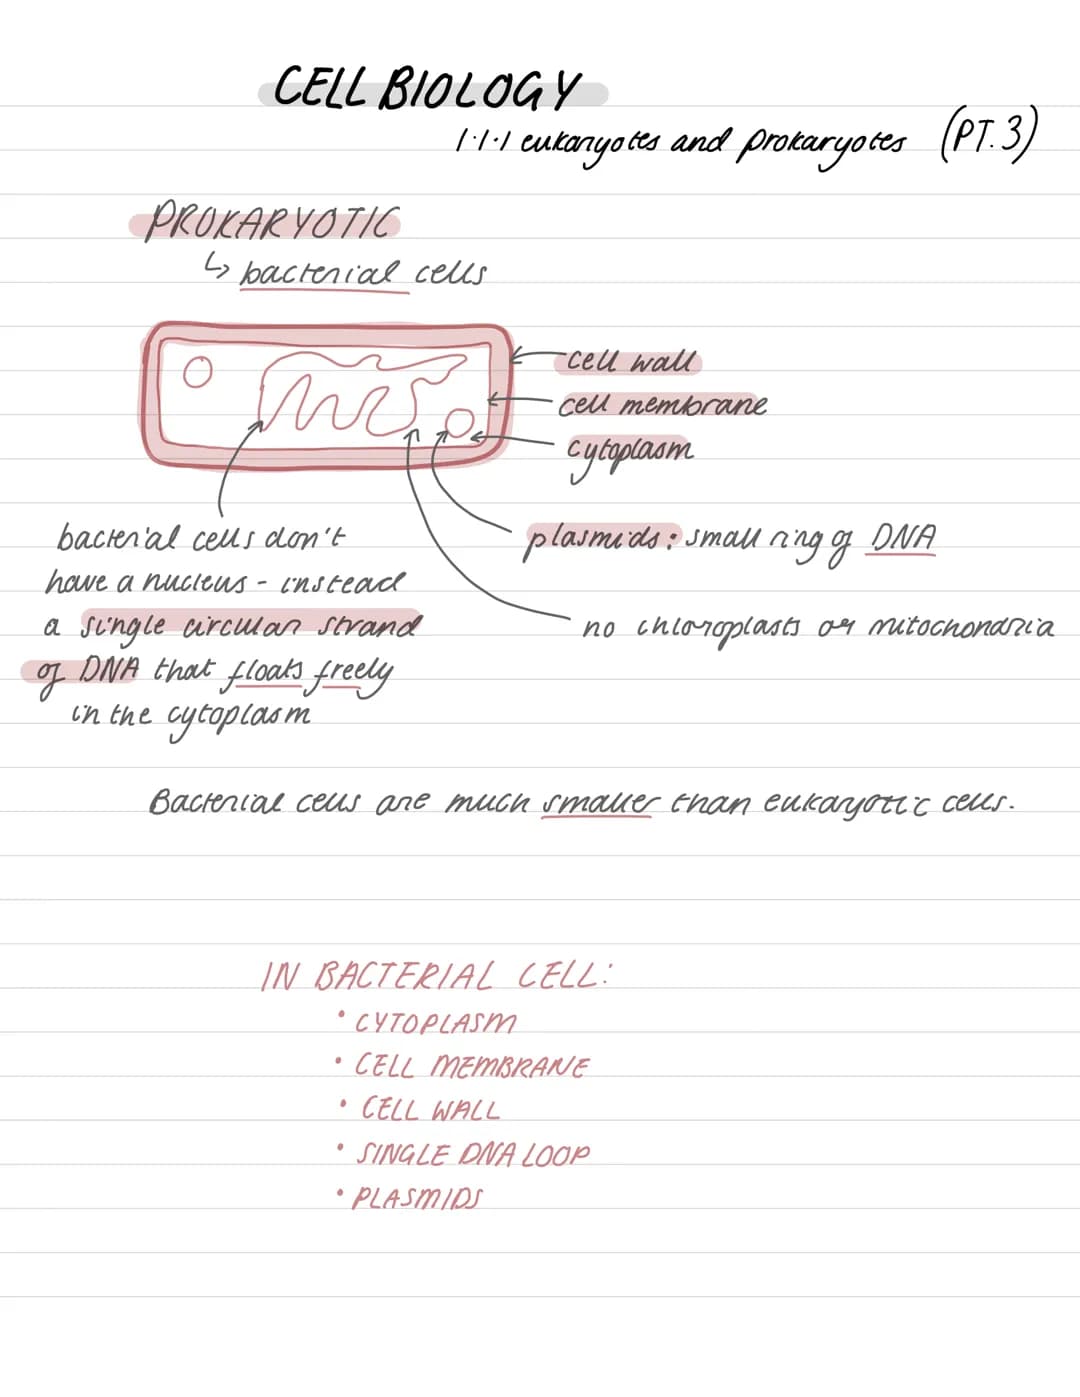 CELL BIOLOGY
1.1.1 eukaryotes and prokaryotes (PT.3)
PROKARYOTIC
↳ bacterial cells
cell wall
cell membrane
cytoplasm
plasmids: small ring of DNA
no chloroplasts or mitochondria
bacterial cells don't
have a nucleus - instead
a single circular strand
of DNA that floats freely
in the cytoplasm
Bacterial cells are much smaller than eukaryotic cells.
IN BACTERIAL CELL:
• CYTOPLASM
• CELL MEMBRANE
• CELL WALL
• SINGLE DNA LOOP
• PLASMIDS